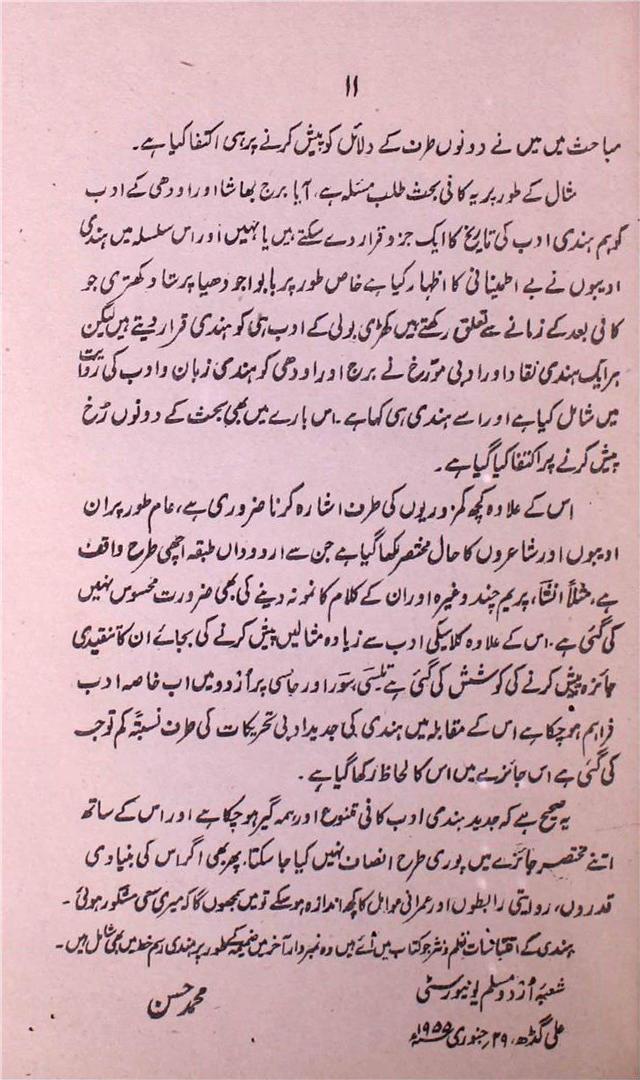 ۱۱
مباحث میں میں نے دونوں طرف کے دلائل کو پیش کرنے پر ہی اکتفا کیا ہے۔
مثال کے طور پر یہ کافی بحث طلب مسئلہ ہے، آیا برج بھاشا اور اودھی کے ادب
کو ہم ہندی ادب کی تاریخ کا ایک جزو قرار دے سکتے ہیں یا نہیں اور اس سلسلہ میں ہندی
ادیبوں نے بے اطمینانی کا اظہار کیا ہے خاص طور پر بابو اجودھیا پرشاد کھتری جو
کافی بعد کے زمانے سے تعلق رکھتے ہیں کھڑی بولی کے ادب ہی کو ہندی قرار دیتے ہیں لیکن
ہر ایک ہندی نقاد اور ادبی مورّخ نے برج اور اودھی کو ہندی زبان و ادب کی روایت
میں شامل کیا ہے اور اسے ہندی ہی کہا ہے۔ اس بارے میں بھی بحث کے دونوں رُخ
پیش کرنے پر اکتفا کیا گیا ہے۔
اس کے علاوہ کچھ کمزوریوں کی طرف اشارہ کرنا ضروری ہے، عام طور پر ان
ادیبوں اور شاعروں کا حال مختصر لکھا گیا ہے جن سے اردو داں طبقہ اچھی طرح واقف
ہے، مثلاً انشاؔ، پریم چند وغیرہ اور ان کے کلام کا نمونہ دینے کی بھی ضرورت محسوس نہیں
کی گئی ہے۔ اس کے علاوہ کلاسیکی ادب سے زیادہ مثالیں پیش کرنے کی بجائے ان کا تنقیدی
جائزہ پیش کرنے کی کوشش کی گئی ہے تلسی، سور اور جائسی پر اُردو میں اب خاصہ ادب
فراہم ہو چکا ہے اس کے مقابلہ میں ہندی کی جدید ادبی تحریکات کی طرف نسبتہً کم توجہ
کی گئی ہے اس جائزے میں اس کا لحاظ رکھا گیا ہے۔
یہ صحیح ہے کہ جدید ہندی ادب کافی متنوع اور ہمہ گیر ہو چکا ہے اور اس کے ساتھ
اتنے مختصر جائزے میں پوری طرح انصاف نہیں کیا جا سکتا، پھر بھی اگر اس کی بنیادی
قدروں، روایتی رابطوں اور عمرانی عوامل کا کچھ اندازہ ہو سکے تو میں سمجھوں گا کہ میری سعی مشکور ہوئی۔
ہندی کے اقتباسات نظم و نثر جو کتاب میں آئے ہیں وہ نمبر وار آخر میں ضمیمہ کے طور پر ہندی رسم خط میں بھی شامل ہیں۔
شعبۂ اُردو مسلم یونیورسٹی
محمد حسن
علی گڈھ، ۲۹؍ جنوری ۱۹۵۵ء